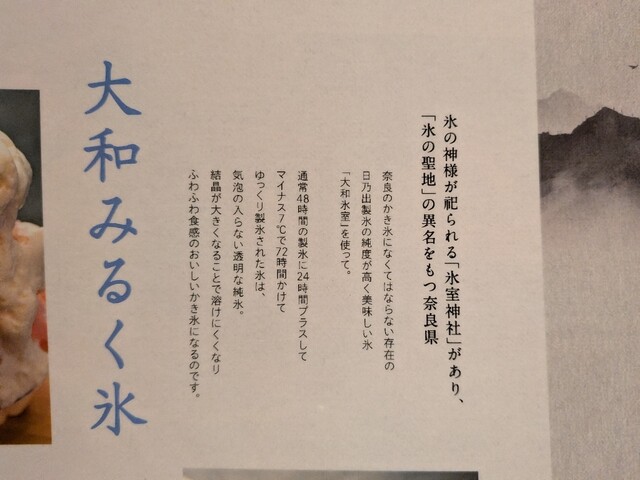 氷の神様が祀られる「氷室神社」があり、
「氷の聖地」の異名をもつ奈良県
奈良のかき氷になくてはならない存在の
日乃出製氷の純度が高く美味しい氷
「大和氷室」を使って。
通常48時間の製氷に24時間プラスして
マイナス7℃で72時間かけて
ゆっくり製氷された氷は、
気泡の入らない透明な純氷。
結晶が大きくなることで溶けにくくなり
ふわふわ食感のおいしいかき氷になるのです。
大和みるく氷